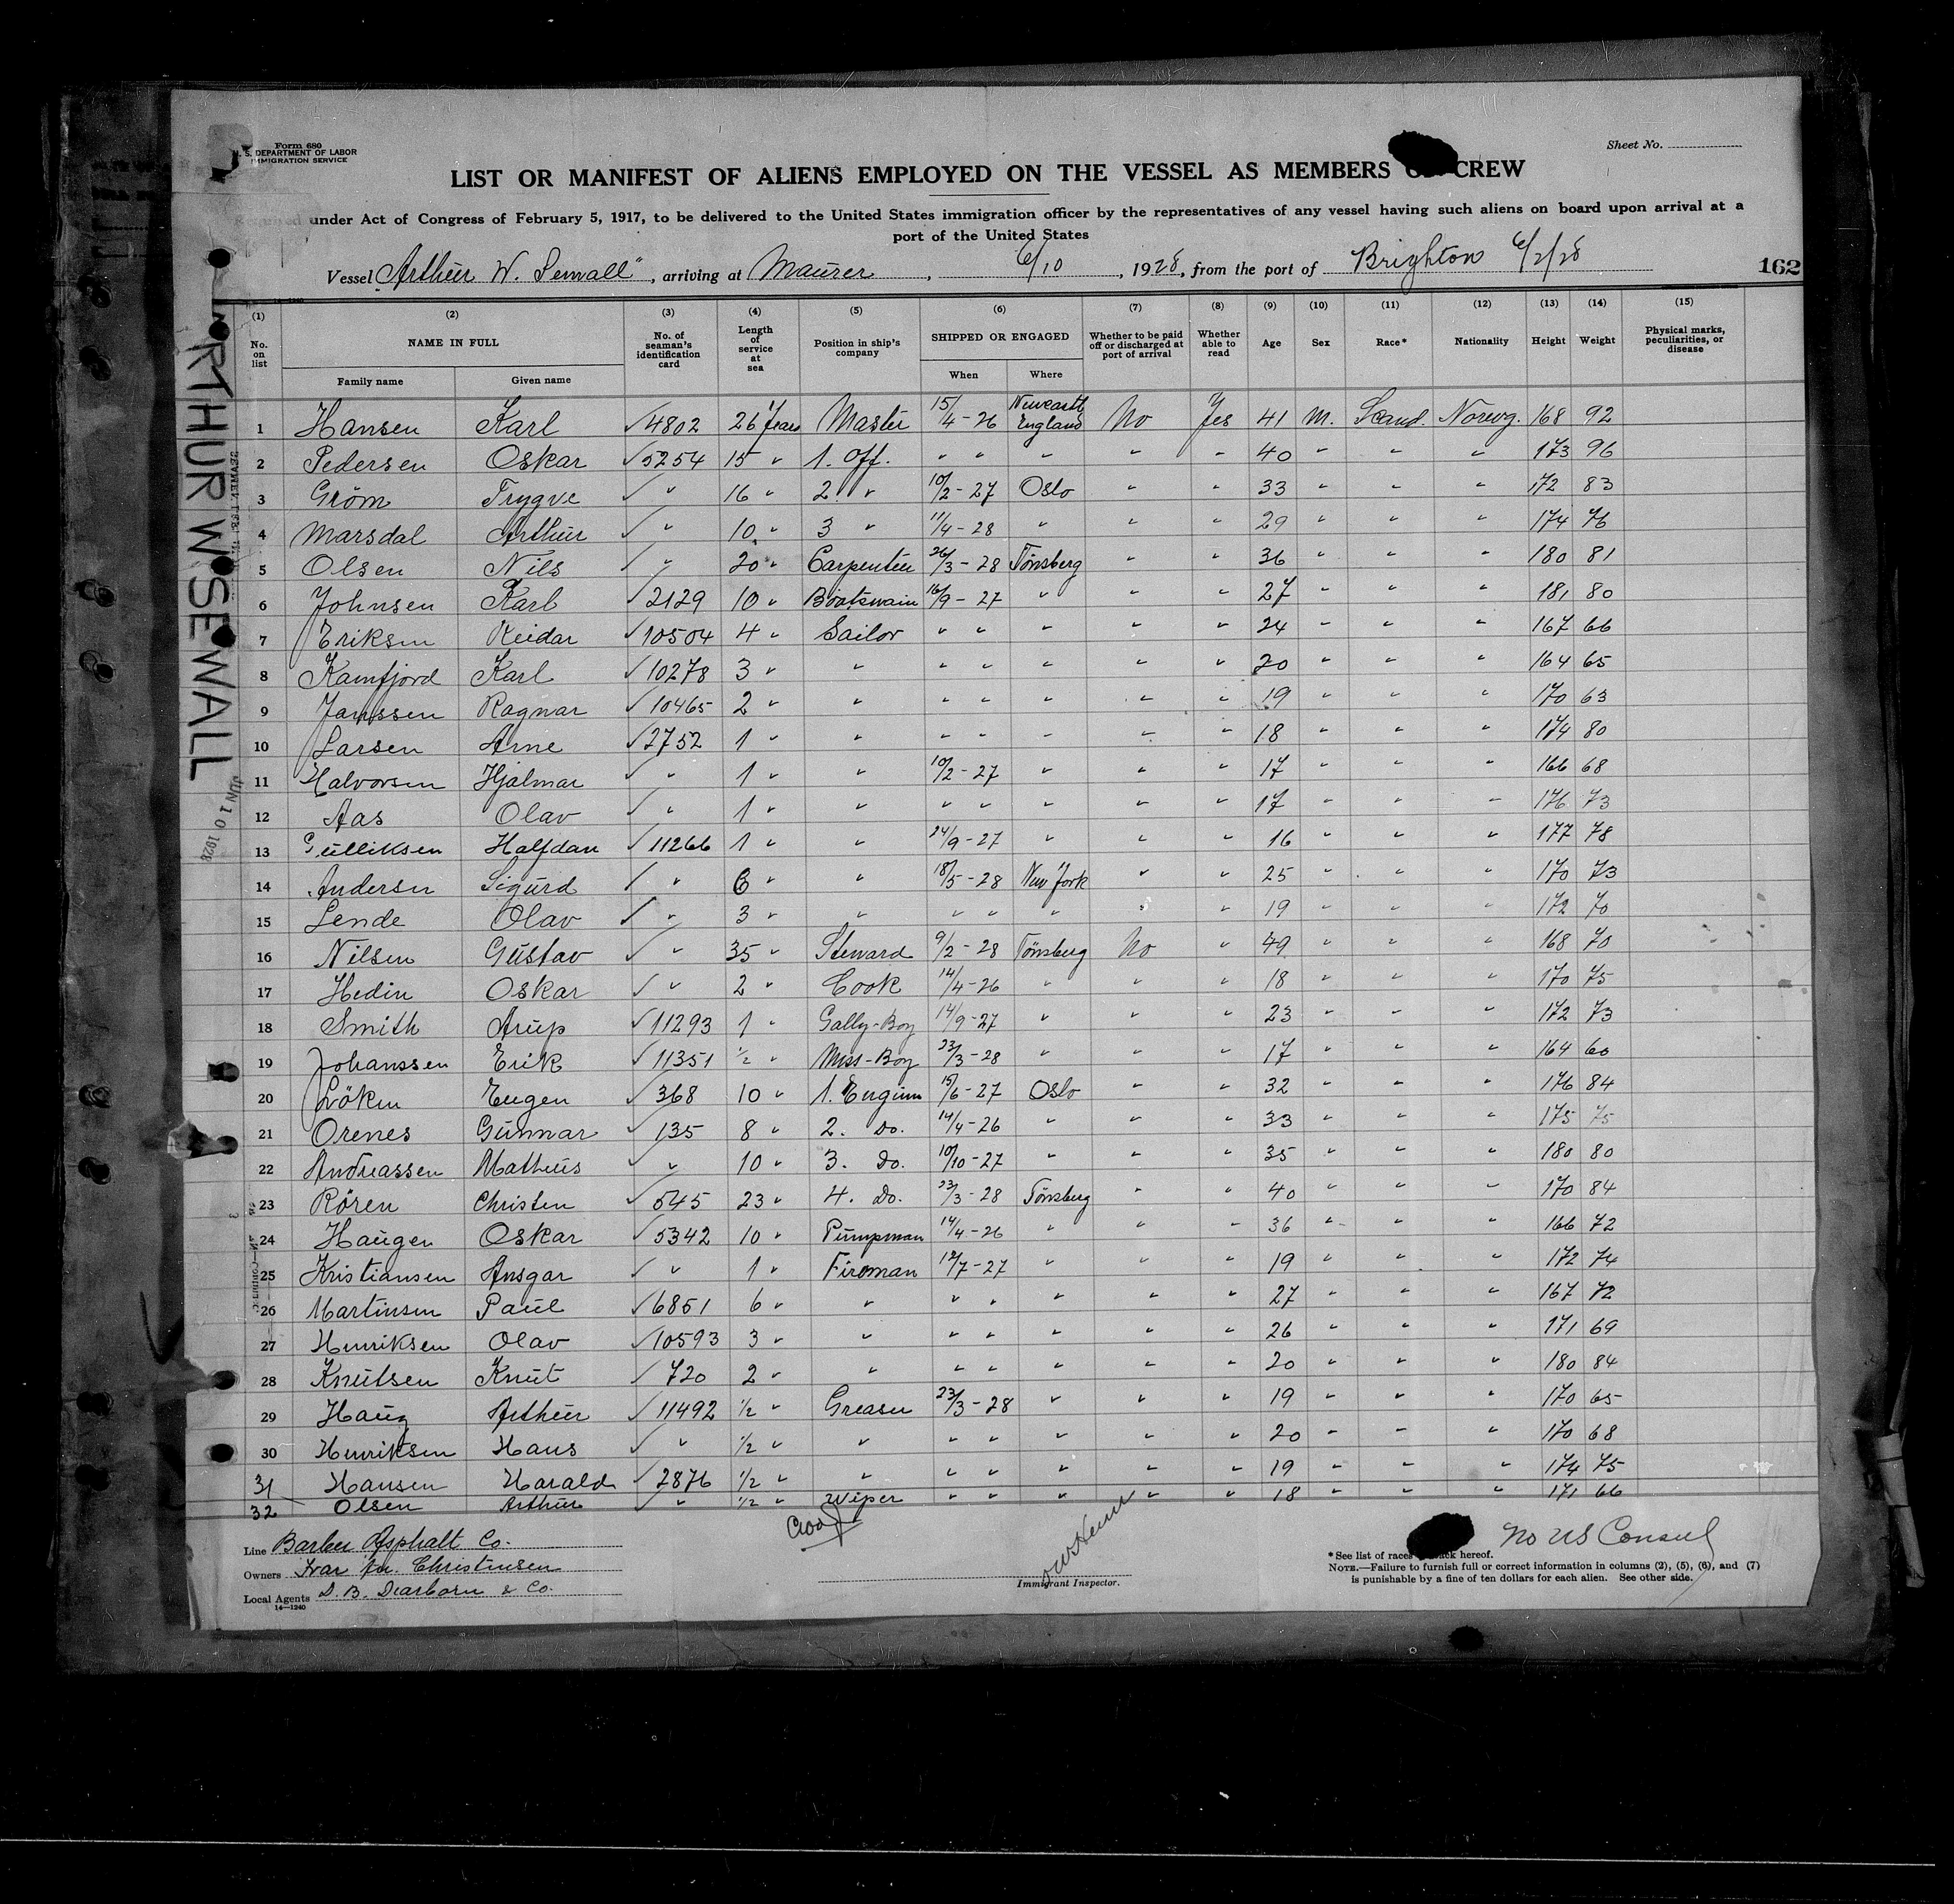 Form 680
U. S. DEPARTMENT OF LABOR
IMMIGRATION SERVICE
Sheet No.
LIST OR MANIFEST OF ALIENS EMPLOYED ON THE VESSEL AS MEMBERS OF CREW
Required under Act of Congress of February 5, 1917, to be delivered to the United States immigration officer by the representatives of any vessel having such aliens on board upon arrival at a
port of the United States
Vessel Arthur W. Sewall", arriving at Maurer, 6/10, 1928, from the port of Brighton 6/2/28
162
ARTHUR W SEWALL
JUN 10 1928
(1) (2) (3) (4) (5) (6) (7) (8) (9) (10) (11) (12) (13) (14) (15)
No. on list NAME IN FULL No. of seaman's identification card Length of service at sea Position in ship's company SHIPPED OR ENGAGED Whether to be paid off or discharged at port of arrival Whether able to read Age Sex Race* Nationality Height Weight Physical marks, peculiarities, or disease
Family name Given name When Where
1 Hansen Karl ✓4802 26 Years Master 15/4-26 Newcastle England No Yes 41 M. Scand. Norwg. 168 92
2 Pedersen Oskar ✓5254 15 " 1. Off. " " " " " 40 " " " 173 96
3 Gröm Trygve ✓ " 16 " 2 " 10/2-27 Oslo " " 33 " " " 172 83
4 Marsdal Arthur ✓ " 10 " 3 " 11/4-28 " " " 29 " " " 174 76
5 Olsen Nils ✓ " 20 " Carpenter 26/3-28 Tönsberg " " 36 " " " 180 81
6 Johnsen Karl ✓2129 10 " Boatswain 16/9-27 " " " 27 " " " 181 80
7 Eriksen Reidar ✓10504 4 " Sailor " " " " " 24 " " " 167 66
8 Kamfjord Karl ✓10278 3 " " " " " " " 20 " " " 164 65
9 Janssen Ragnar ✓10465 2 " " " " " " " 19 " " " 170 63
10 Larsen Arne ✓2752 1 " " " " " " " 18 " " " 174 80
11 Halvorsen Hjalmar ✓ " 1 " " 10/2-27 " " " 17 " " " 166 68
12 Aas Olav ✓ " 1 " " " " " " " 17 " " " 176 73
13 Gulliksen Halfdan ✓11266 1 " " 24/9-27 " " " 16 " " " 177 78
14 Andersen Sigurd ✓ " 6 " " 18/5-28 New York " " 25 " " " 170 73
15 Lende Olav ✓ " 3 " " " " " " " 19 " " " 172 70
16 Nilsen Gustav ✓ " 35 " Steward 9/2-28 Tönsberg No " 49 " " " 168 70
17 Hedin Oskar ✓ " 2 " Cook 14/4-26 " " " 18 " " " 170 75
18 Smith Arup ✓11293 1 " Gally-Boy 14/9-27 " " " 23 " " " 172 73
19 Johanssen Erik ✓11351 1/2 " Mess-Boy 23/3-28 " " " 17 " " " 164 60
20 Löken Eugen ✓368 10 " 1. Engineer 15/6-27 Oslo " " 32 " " " 176 84
21 Orenes Gunnar ✓135 8 " 2. Do. 14/4-26 " " " 33 " " " 175 75
22 Andreassen Matheus ✓ " 10 " 3. Do. 10/10-27 " " " 35 " " " 180 80
23 Rören Christen ✓545 23 " 4. Do. 23/3-28 Tönsberg " " 40 " " " 170 84
24 Haugen Oskar ✓5342 10 " Pumpman 14/4-26 " " " 36 " " " 166 72
25 Kristiansen Ansgar ✓ " 1 " Fireman 12/7-27 " " " 19 " " " 172 74
26 Martinsen Paul ✓6851 6 " " " " " " " 27 " " " 167 72
27 Henriksen Olav ✓10593 3 " " " " " " " 26 " " " 171 69
28 Knutsen Knut ✓720 2 " " " " " " " 20 " " " 180 84
29 Haug Arthur ✓11492 1/2 " Greaser 23/3-28 " " " 19 " " " 170 65
30 Henriksen Hans ✓ " 1/2 " " " " " " " 20 " " " 170 68
31 Hansen Harald ✓2876 1/2 " " " " " " " 19 " " " 174 75
32 Olsen Arthur ✓ " 1/2 " Wiper " " " " " 18 " " " 171 66
Line Barber Asphalt Co.
Owners Ivar An. Christensen
Local Agents D. B. Dearborn & Co.
14—1240
Immigrant Inspector.
No US Consul
*See list of races on back hereof.
NOTE.—Failure to furnish full or correct information in columns (2), (5), (6), and (7)
is punishable by a fine of ten dollars for each alien. See other side.